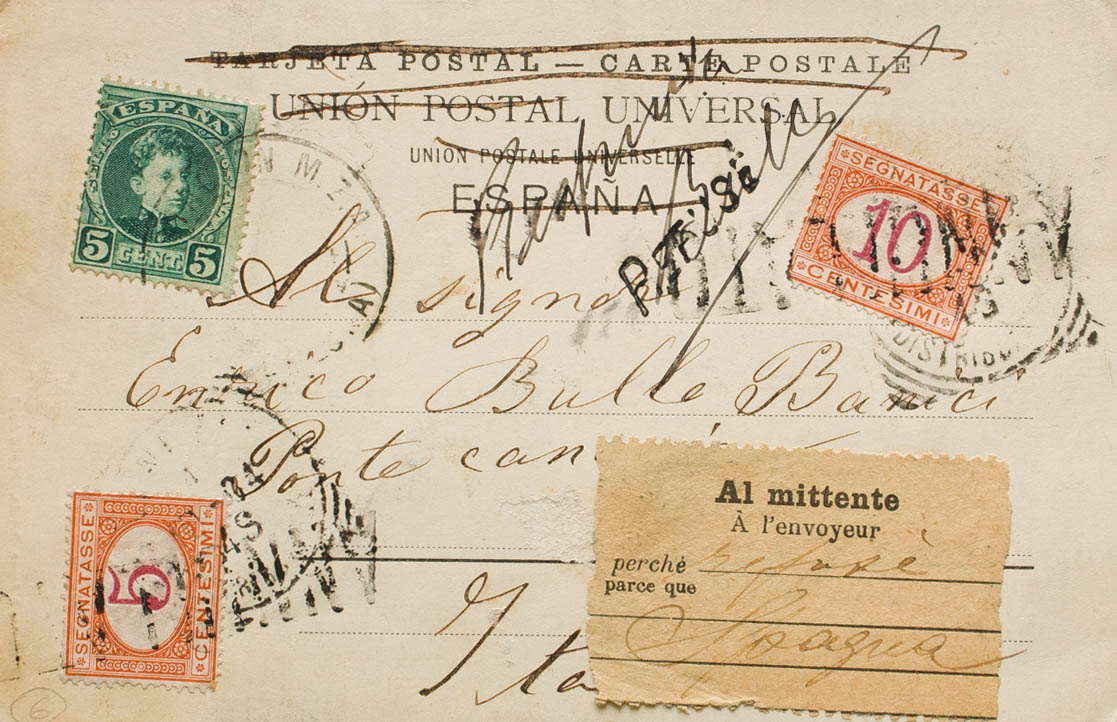 TARJETA POSTAL — CARTE POSTALE
UNIÓN POSTAL UNIVERSAL
UNION POSTALE UNIVERSELLE
ESPAÑA
ESPAÑA
5 CENT. 5
SEGNATASSE
10
CENTESIMI
DISTRIBU
Al signor
Enrico Bullo
Ponte can
Ita
SEGNATASSE
5
CENTESIMI
Al mittente
À l'envoyeur
perché refusé
parce que
Spagna
6